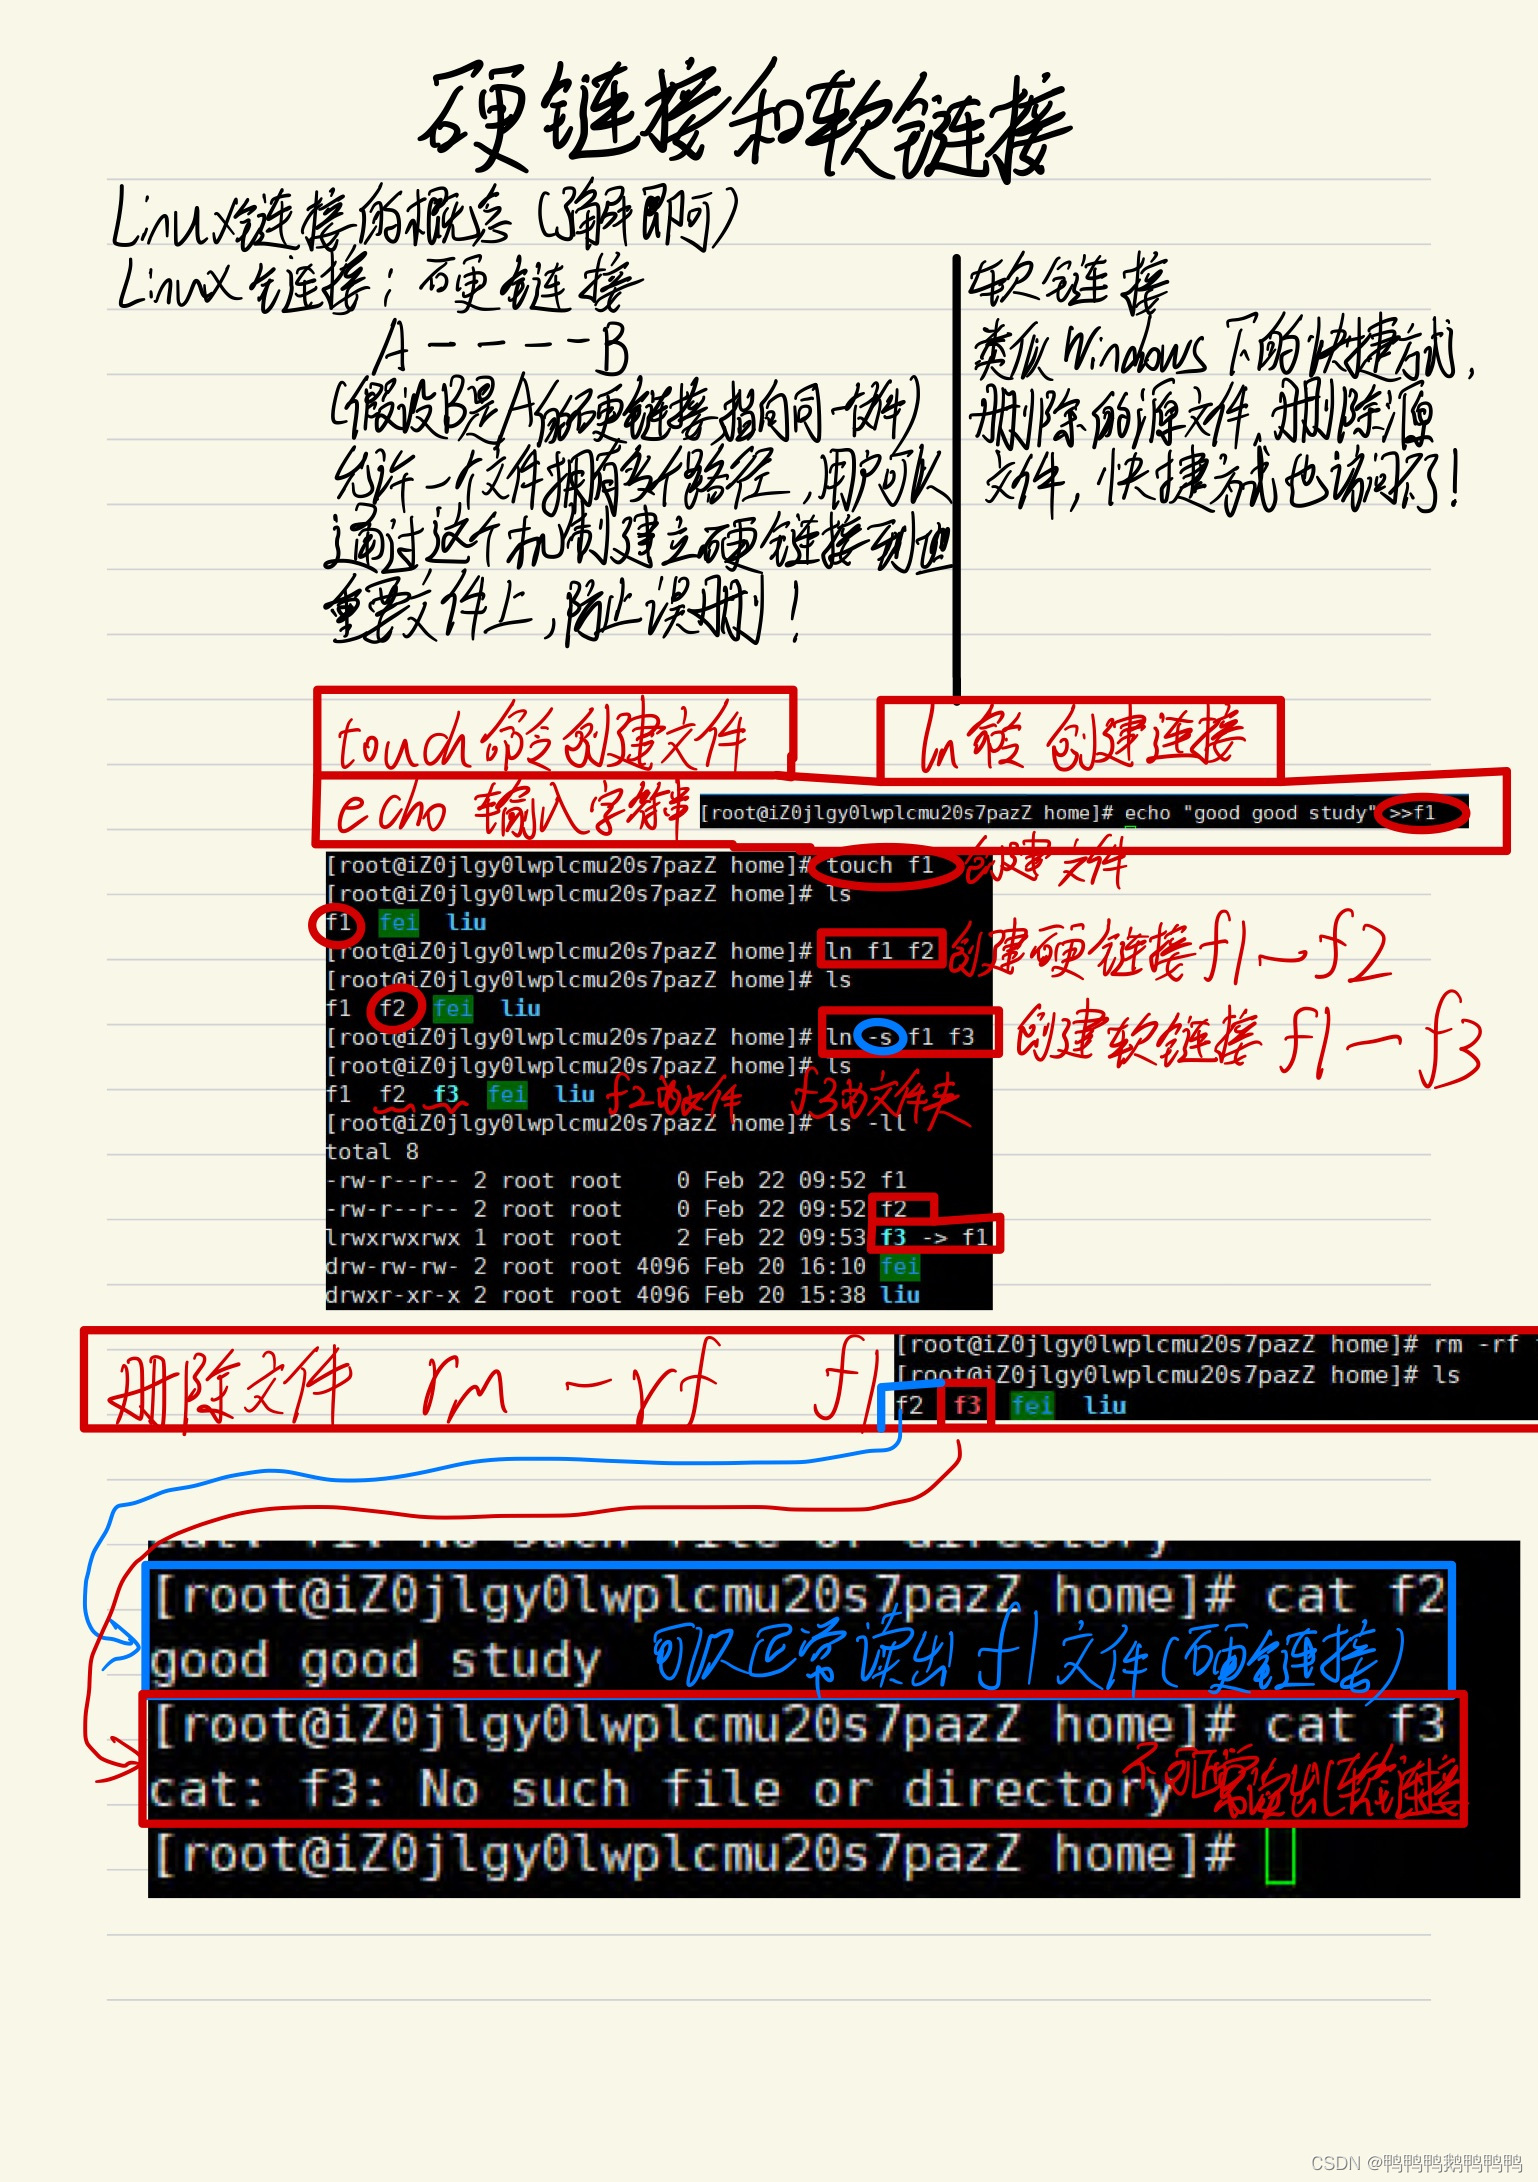 硬链接和软链接
Linux链接的概念（了解即可）
Linux链接：硬链接
A----B
（假设B是A的硬链接指向同一文件）
允许一个文件拥有多个路径，用户可以
通过这个机制建立硬链接到
重要文件上，防止误删！
软链接
类似Windows下的快捷方式，
删除的源文件，删除源
文件，快捷方式也访问不了！
touch命令创建文件
ln命令 创建连接
echo 输入字符串
[root@iZ0jlgy0lwplcmu20s7pazZ home]# echo "good good study" >>f1
[root@iZ0jlgy0lwplcmu20s7pazZ home]# touch f1 创建文件
[root@iZ0jlgy0lwplcmu20s7pazZ home]# ls
f1 fei liu
[root@iZ0jlgy0lwplcmu20s7pazZ home]# ln f1 f2 创建硬链接f1—f2
[root@iZ0jlgy0lwplcmu20s7pazZ home]# ls
f1 f2 fei liu
[root@iZ0jlgy0lwplcmu20s7pazZ home]# ln -s f1 f3 创建软链接 f1—f3
[root@iZ0jlgy0lwplcmu20s7pazZ home]# ls
f1 f2 f3 fei liu f2为文件 f3为文件夹
[root@iZ0jlgy0lwplcmu20s7pazZ home]# ls -ll
total 8
-rw-r--r-- 2 root root 0 Feb 22 09:52 f1
-rw-r--r-- 2 root root 0 Feb 22 09:52 f2
lrwxrwxrwx 1 root root 2 Feb 22 09:53 f3 -> f1
drw-rw-rw- 2 root root 4096 Feb 20 16:10 fei
drwxr-xr-x 2 root root 4096 Feb 20 15:38 liu
删除文件 rm -rf f1
[root@iZ0jlgy0lwplcmu20s7pazZ home]# rm -rf
[root@iZ0jlgy0lwplcmu20s7pazZ home]# ls
f2 f3 fei liu
cat: f1: No such file or directory
[root@iZ0jlgy0lwplcmu20s7pazZ home]# cat f2
good good study 可以正常读出f1文件（硬链接）
[root@iZ0jlgy0lwplcmu20s7pazZ home]# cat f3
cat: f3: No such file or directory 不可正常读出（软链接
[root@iZ0jlgy0lwplcmu20s7pazZ home]#
CSDN @鸭鸭鸭鹅鸭鸭鸭